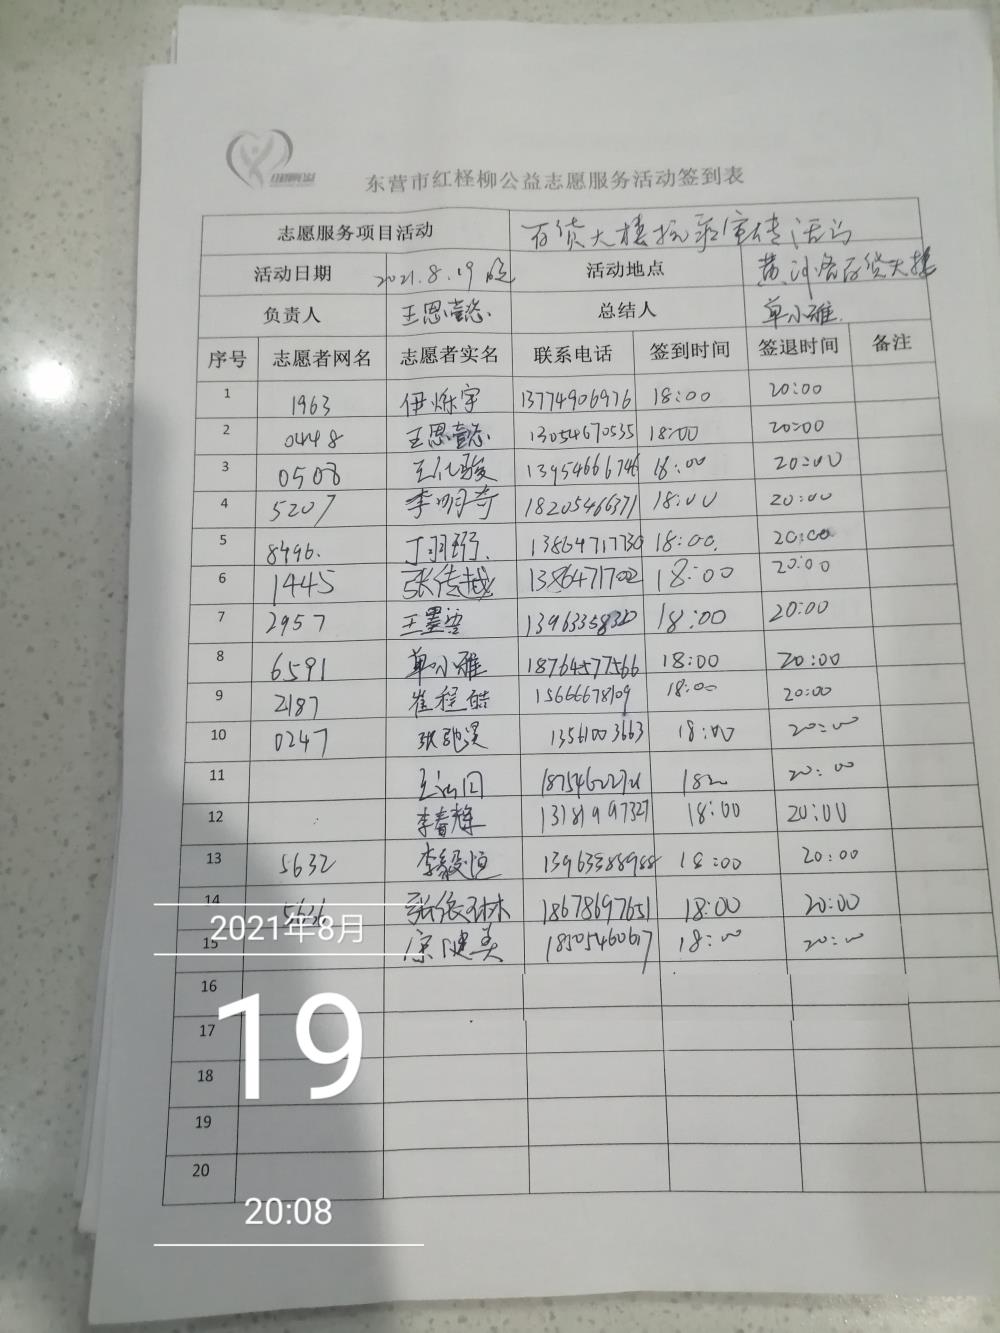 东营市红柽柳公益志愿服务活动签到表
志愿服务项目活动 百货大楼 宣传活动
活动日期 2021.8.19 晚 活动地点 黄河路百货大楼
负责人 王思懿 总结人 单小雅
序号 志愿者网名 志愿者实名 联系电话 签到时间 签退时间 备注
1 1963 伊烁宇 13774906976 18:00 20:00
2 0448 王思懿 13054670535 18:00 20:00
3 0508 13954666746 18:00 20:00
4 5207 李明奇 18205466371 18:00 20:00
5 8496. 丁羽珩. 13864717730 18:00. 20:00
6 1445 张传越 1386471702 18:00 20:00
7 2957 王墨 18:00 20:00
8 6591 单小雅 18764577566 18:00 20:00
9 2187 崔程皓 15666678109 18:00 20:00
10 0247 张 13561003663 18:00 20:00
11 20:00
12 李春辉 13181997327 18:00 20:00
13 5632 李毅恒 13963388988 18:00 20:00
14 5636 18678697651 18:00 20:00
15 宗健美 18505460617 18:00 20:00
16
17
18
19
20
2021年8月
19
20:08